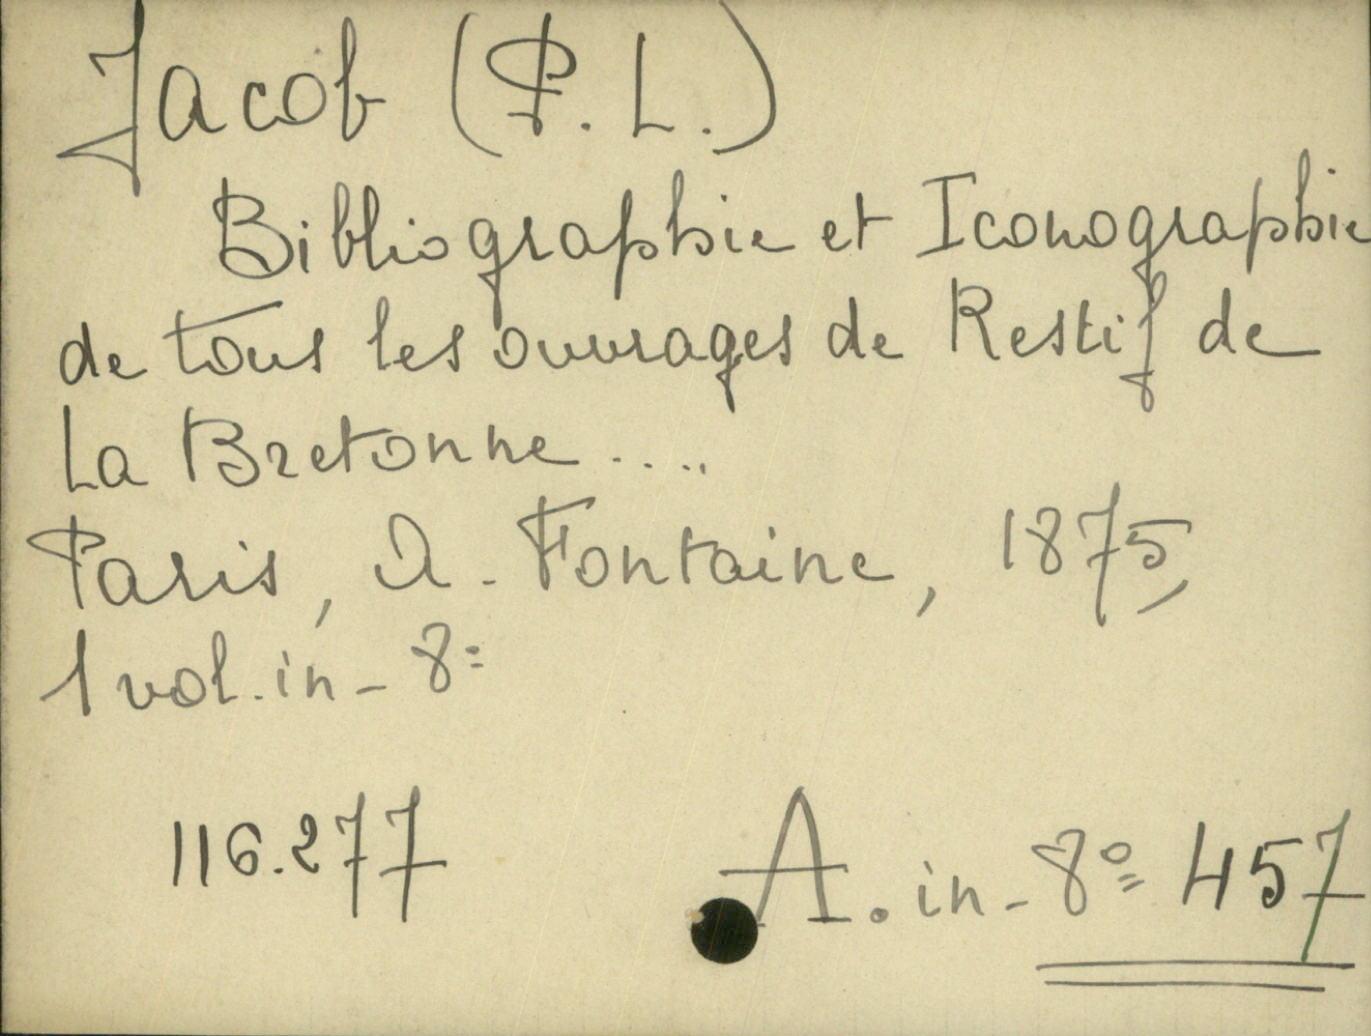 Jacob (P. L.)
Bibliographie et Iconographie
de tous les ouvrages de Restif de
La Bretonne ....
Paris, A. Fontaine, 1875,
1 vol. in-8º
116.277
A. in-8º 457